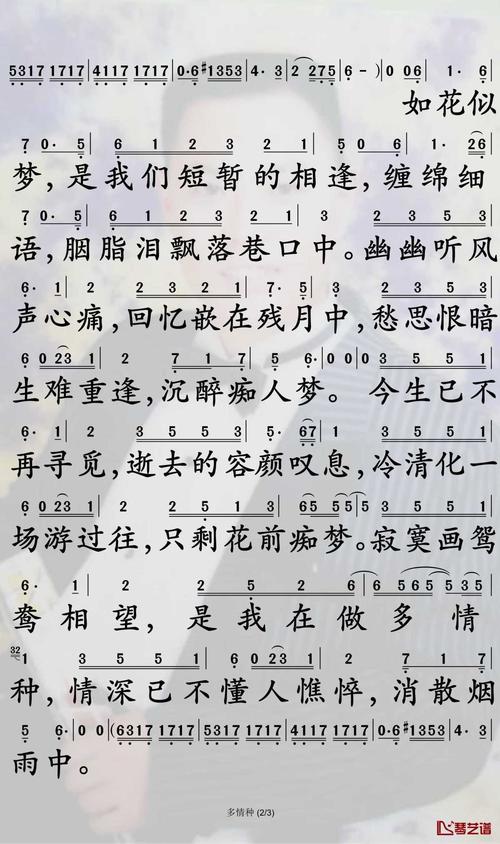 5317 1717|4117 1717|0·6#1353|4· 3|2 275|6 -)|0 06|1· 6
如花似
7 0· 5|6 1 2 3|2 1 7 6|1· 26
梦,是我们短暂的相逢,缠绵细
7 0· 5|6 1 2 3|2 0 2 1|2 3 5 3
语,胭脂泪飘落巷口中。幽幽听风
6· 1|2·|2 3 2 1|7· 5|3 5 5 1
声心痛,回忆嵌在残月中,愁思恨暗
6 0 23 1|2|7 1 7|5 6·|0 0|3 5 5 1
生难重逢,沉醉痴人梦。今生已不
6· 1|2|3 5 5 3|3· 67|3 5 5 1
再寻觅,逝去的容颜叹息,冷清化一
6 0 23 1|2|2 5 1 3|65 5|1 3 5 3
场游过往,只剩花前痴梦。寂寞画鸳
6· 1|2 2|2 5 2 6|6 565 535
鸯相望,是我在做多情
32 1|3 5 5 1|6 0 23 1|2|7 1 7
种,情深已不懂人憔悴,消散烟
5 6|0 0(6317 1717|5317 1717|4117 1717|0·6#1353|4· 3
雨中。
多情种 (2/3)
琴艺谱